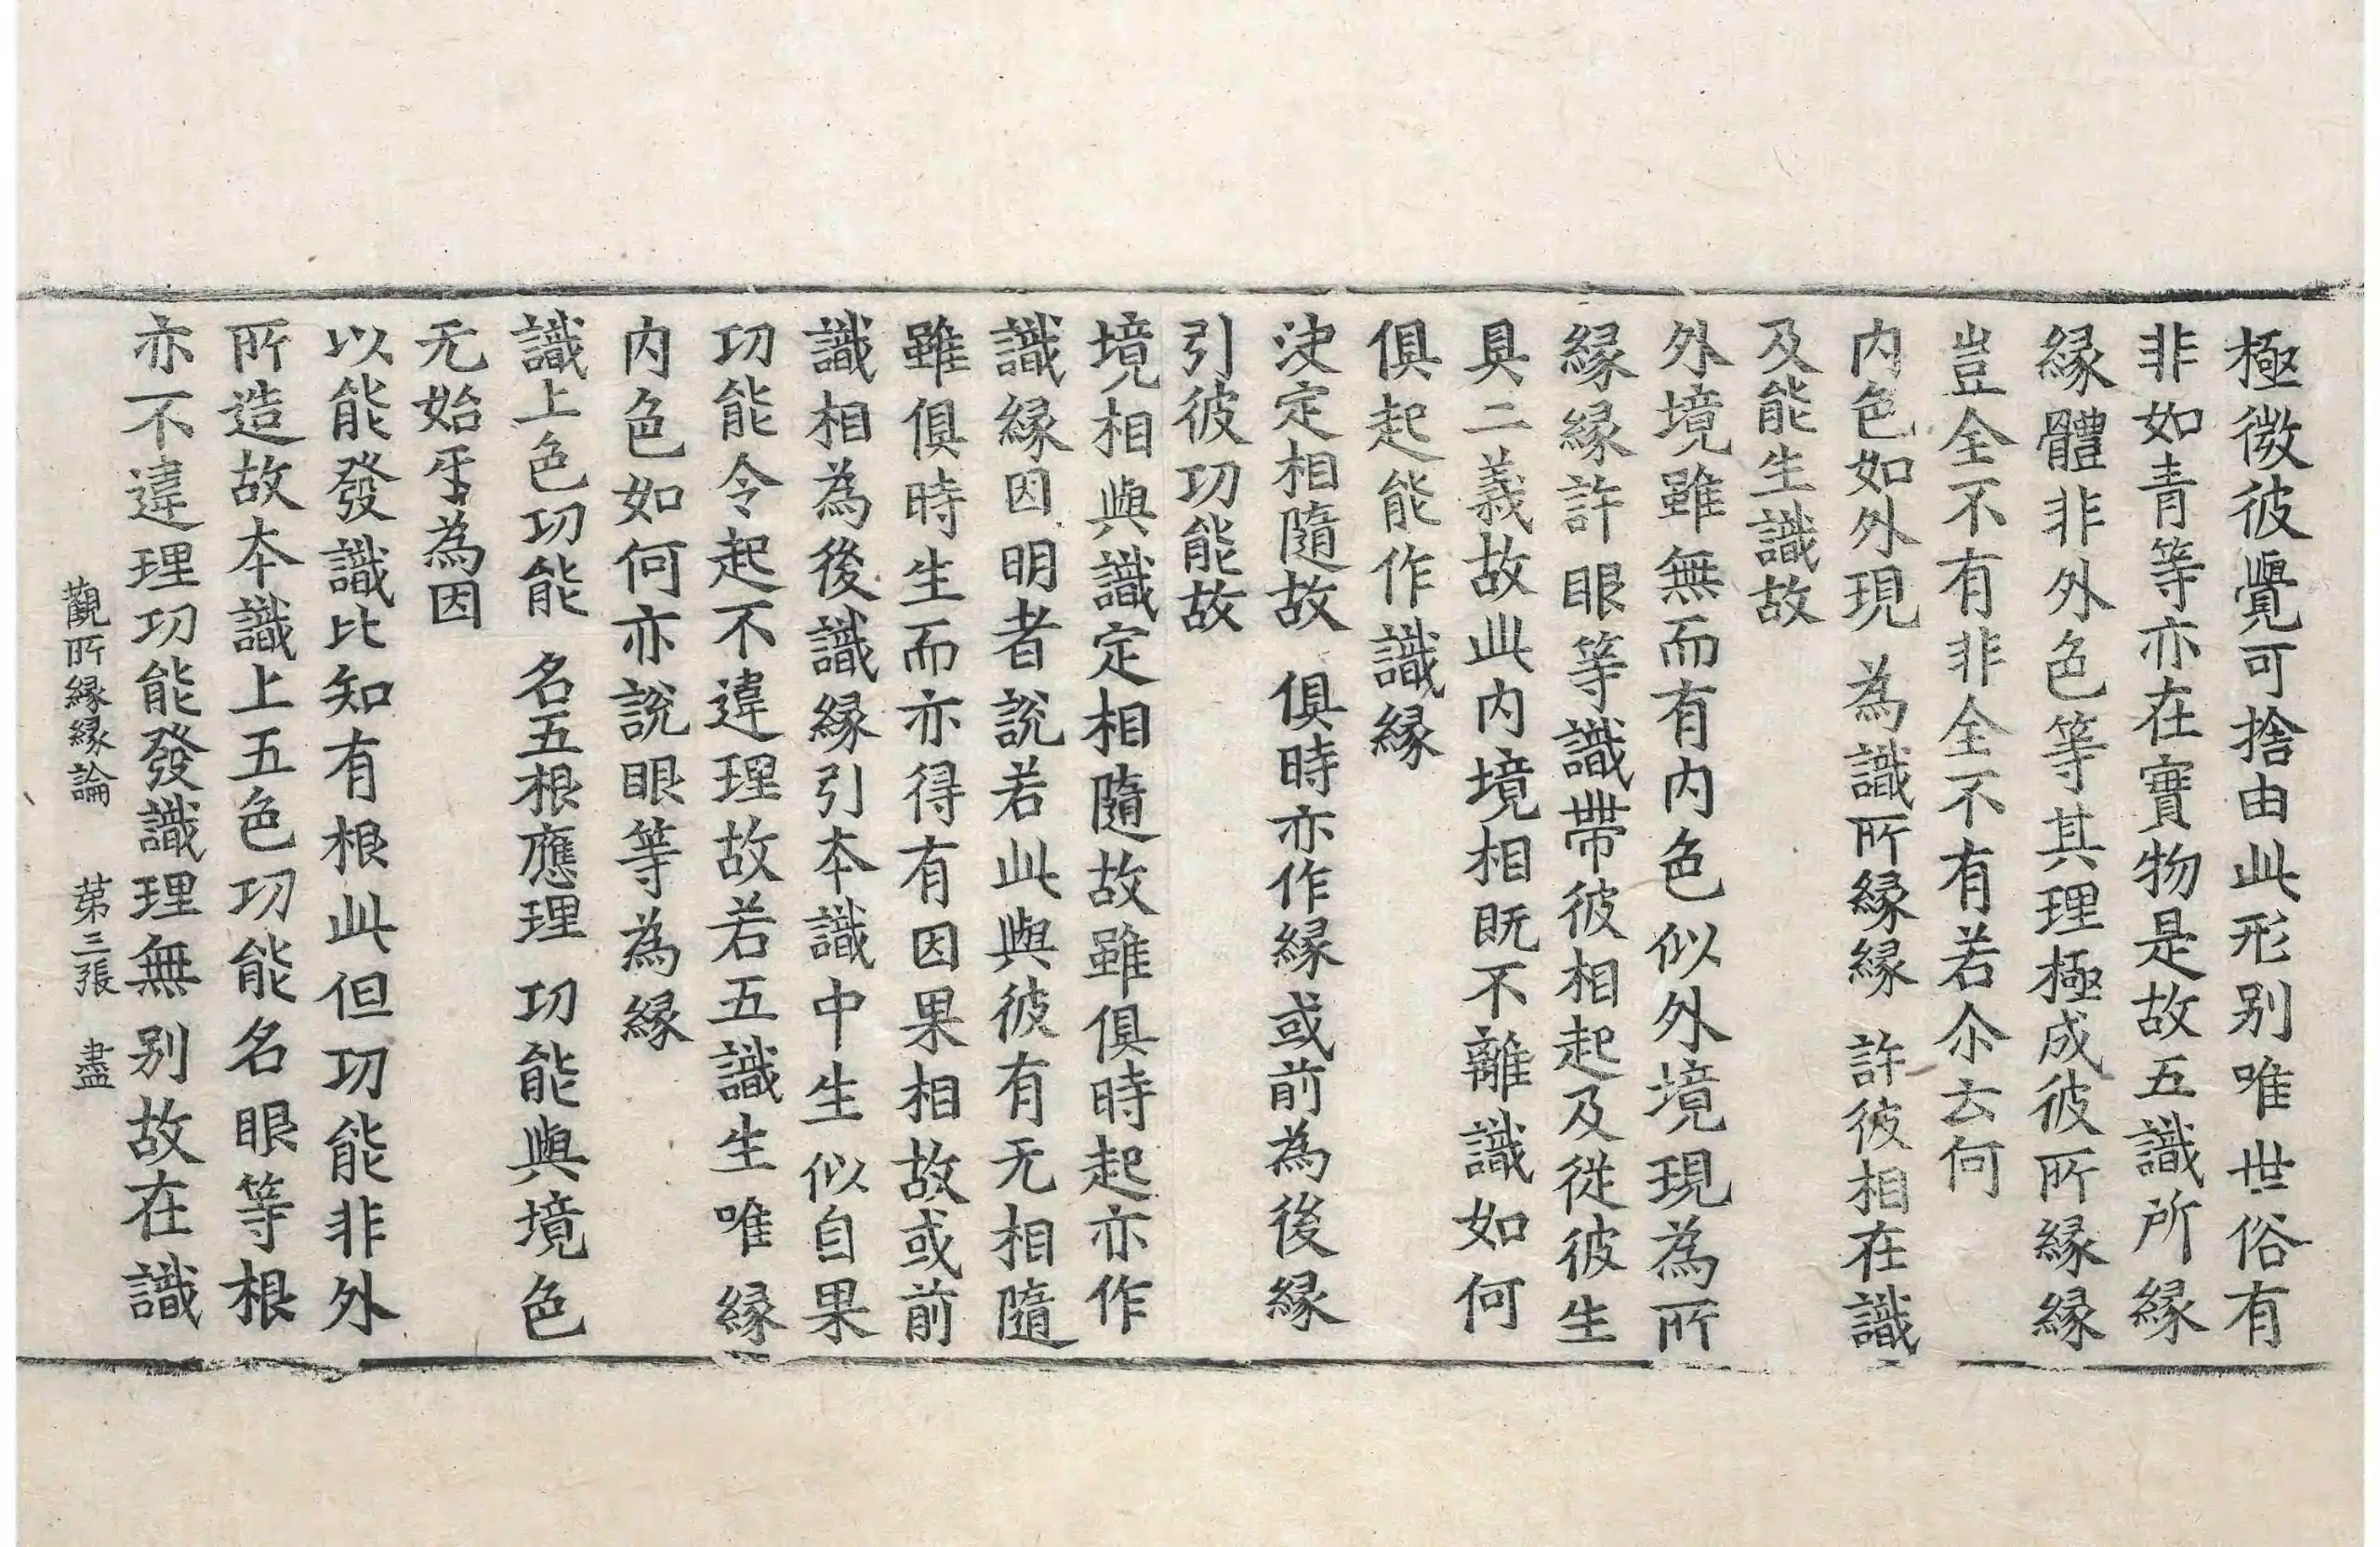 極微彼覺可捨由此形别唯世俗有
非如青等亦在實物是故五識所縁
縁體非外色等其理極成彼所縁縁
豈全不有非全不有若尒云何
内色如外現　為識所縁縁　許彼相在識
及能生識故
外境雖無而有内色似外境現為所
縁縁許眼等識帶彼相起及從彼生
具二義故此内境相既不離識如何
俱起能作識縁
決定相隨故　俱時亦作縁或前為後縁
引彼功能故
境相與識定相隨故雖俱時起亦作
識縁因明者說若此與彼有无相隨
雖俱時生而亦得有因果相故或前
識相為後識縁引本識中生似自果
功能令起不違理故若五識生唯縁
内色如何亦說眼等為縁
識上色功能　名五根應理　功能與境色
无始㸦為因
以能發識比知有根此但功能非外
所造故本識上五色功能名眼等根
亦不違理功能發識理無别故在識
觀所縁縁論　苐三張　盡